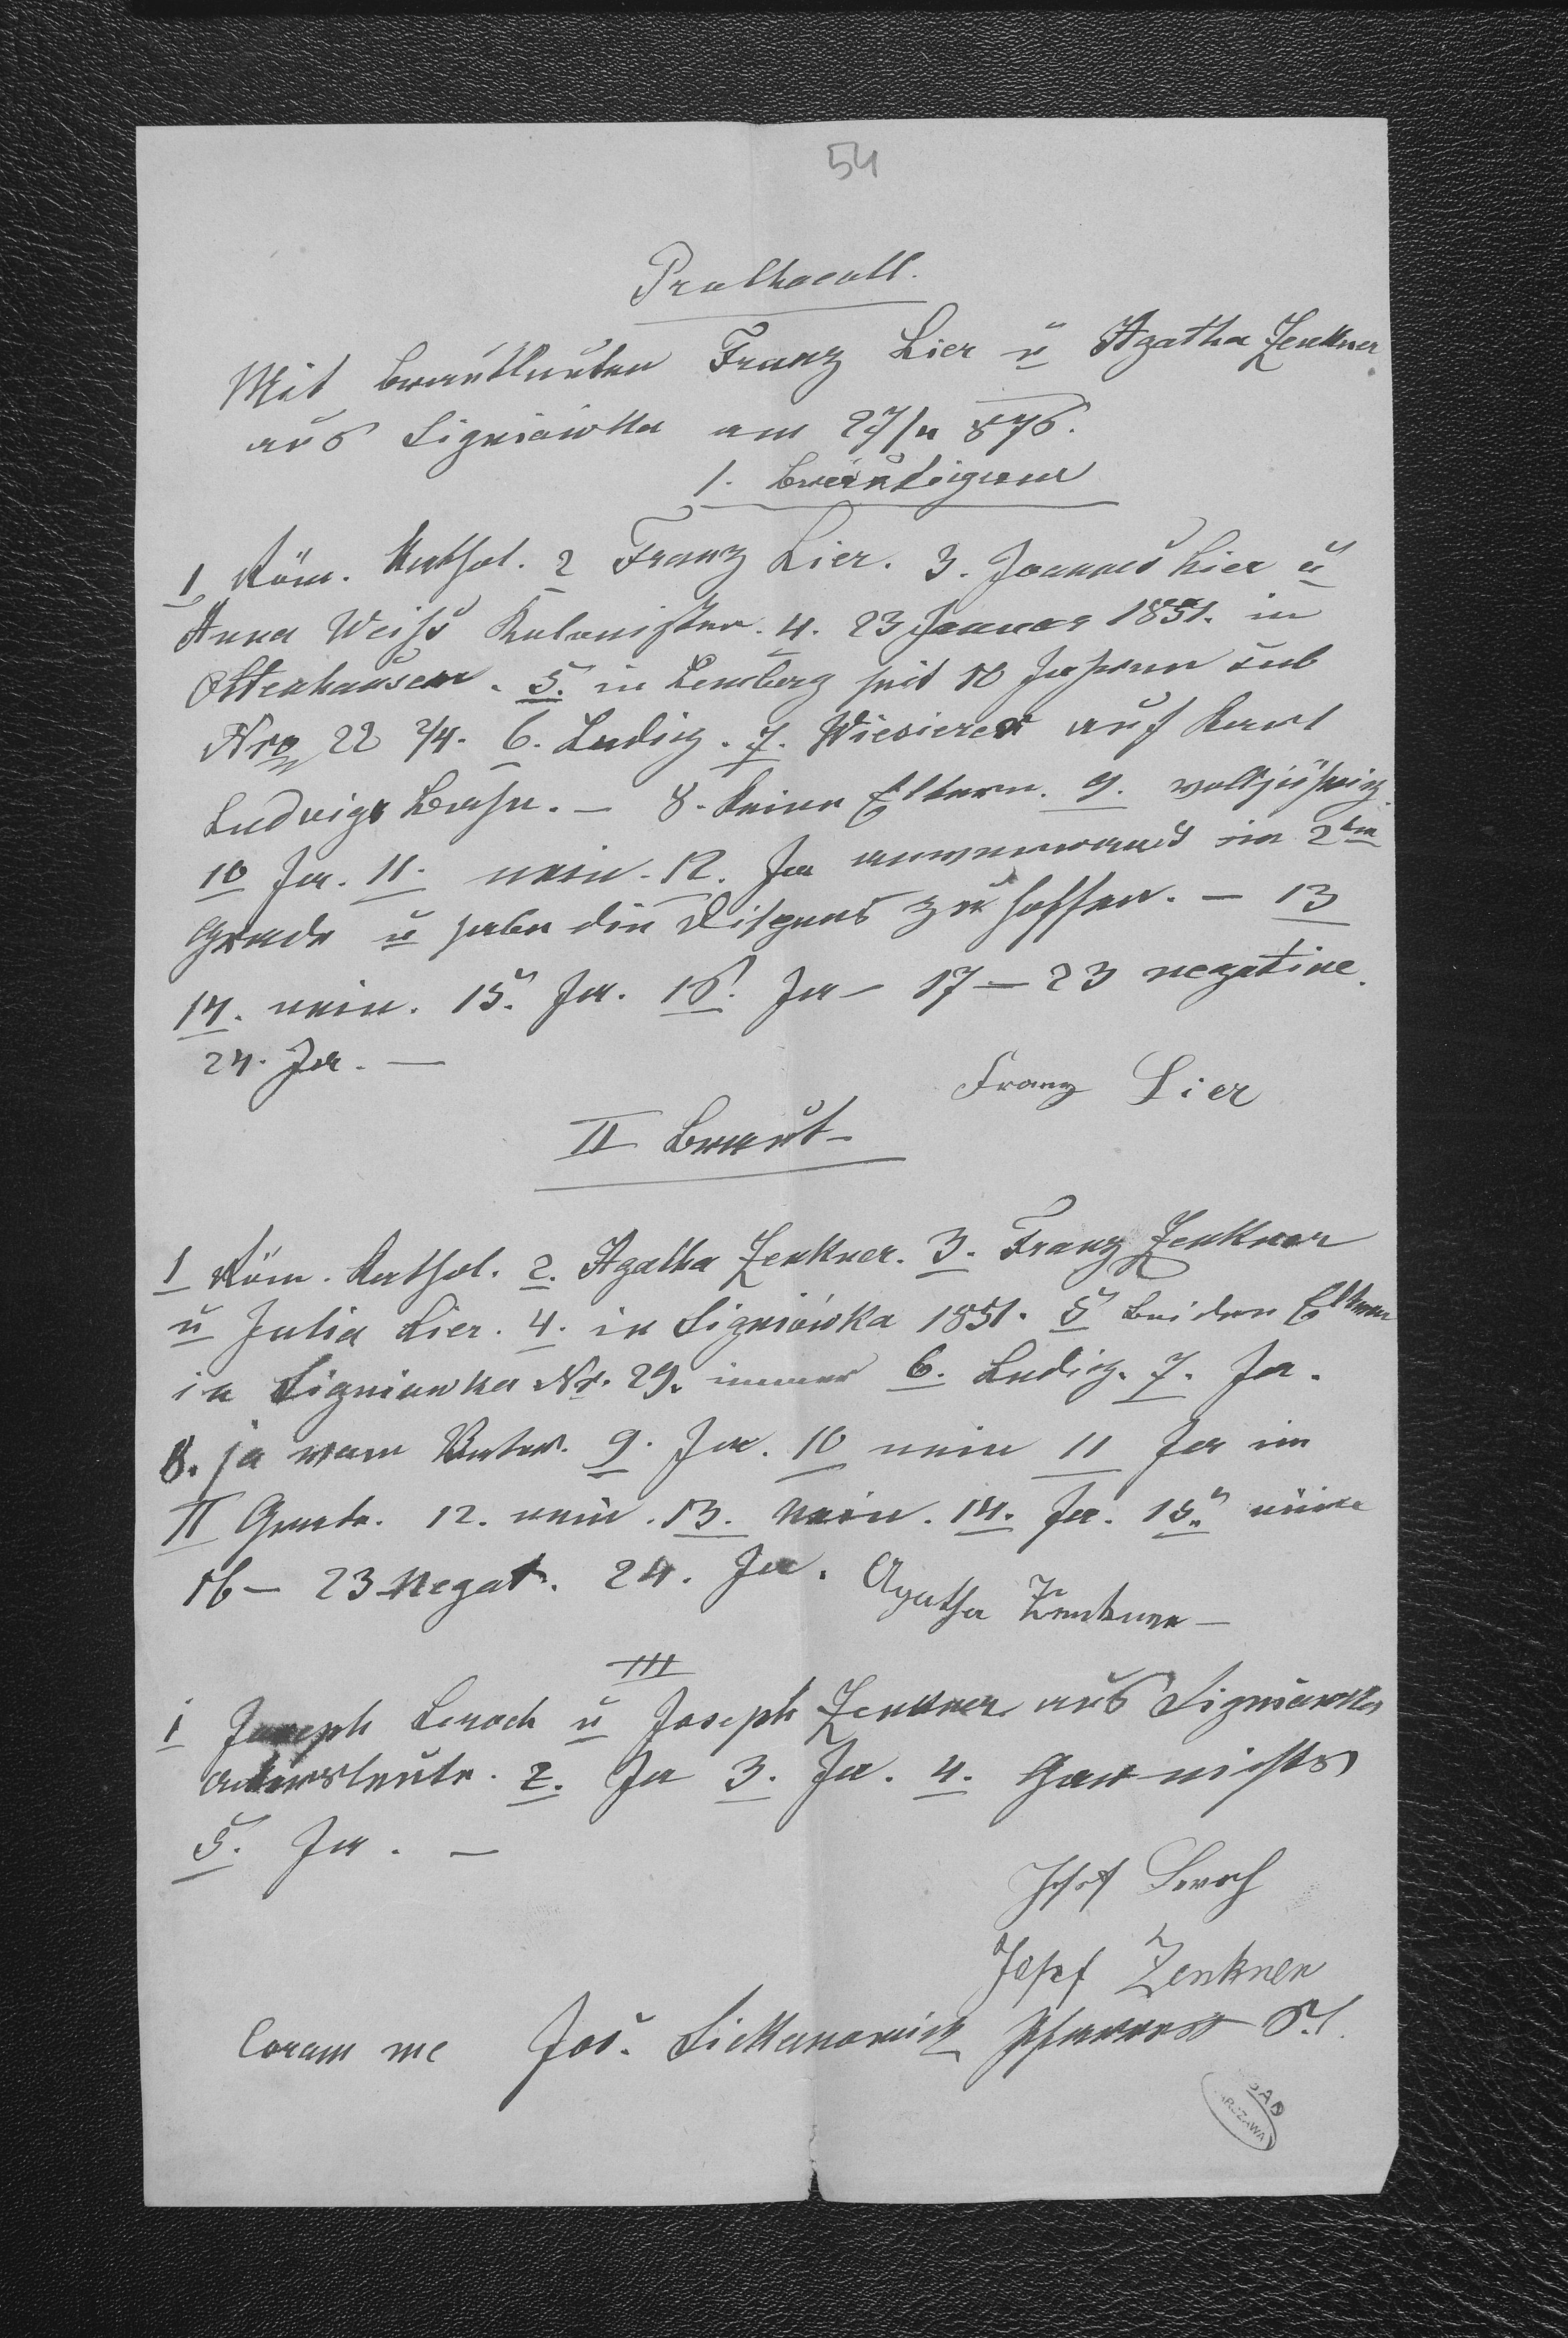 54
Prothocoll.
Mit Brautleuten Franz Lier u Agatha Zenkner
aus Signiówka am 27/ 876.
1. Bräutigam
1 Röm. Kathol. 2 Franz Lier. 3. Joannes Lier u
Anna Weiss Kolonisten. 4. 23 Januar 1851. in
Ottenhausen. 5. in Lemberg seit 10 Jahren sub
Nro 22 2/4. 6. Ledig. 7. auf Karl
Ludwigs Bahn. — 8. Keine Eltern. 9. volljährig
10 Ja. 11. nein. 12. Ja anverwandt im 2ten
Grade u habe die Dispens zu hoffen. — 13
14. nein. 15. Ja. 16. Ja — 17 — 23 negative.
24. Ja. —
Franz Lier
II Braut
1 Röm. Kathol. 2. Agatha Zenkner. 3. Franz Zenkner
u Julia Lier. 4. in Signiówka 1851. 5 bei den Eltern
in Signiowka Nr. 29. immer 6. Ledig. 7. Ja.
8. ja vom Vater. 9. Ja. 10 nein 11 Ja im
II Grade. 12. nein. 13. Nein. 14. Ja. 15.
16 — 23 Negat. 24. Ja.
Agatha Zenkner —
III
1 Joseph Lerach u Joseph Zenkner aus Signiowka
Ackersleute. 2. Ja 3. Ja. 4. Gar nichts
5. Ja. —
Josef Lerch
Josef Zenkner
Coram me Jos.